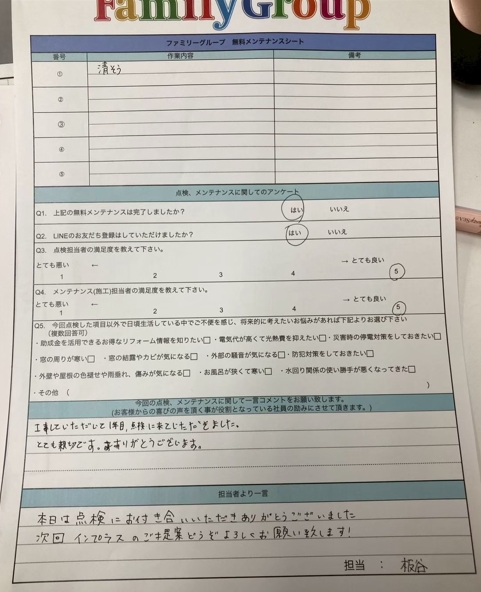 FamilyGroup
ファミリーグループ 無料メンテナンスシート
番号 作業内容 備考
① 清そう
②
③
④
⑤
点検、メンテナンスに関してのアンケート
Q1. 上記の無料メンテナンスは完了しましたか？ はい いいえ
Q2. LINEのお友だち登録はしていただけましたか？ はい いいえ
Q3. 点検担当者の満足度を教えて下さい。
とても悪い ← → とても良い
1 2 3 4 5
Q4. メンテナンス(施工)担当者の満足度を教えて下さい。
とても悪い ← → とても良い
1 2 3 4 5
Q5. 今回点検した項目以外で日頃生活している中でご不便を感じ、将来的に考えたいお悩みがあれば下記よりお選び下さい
(複数回答可)
・助成金を活用できるお得なリフォーム情報を知りたい□ ・電気代が高くて光熱費を抑えたい□ ・災害時の停電対策をしておきたい□
・窓の周りが寒い□ ・窓の結露やカビが気になる□ ・外部の騒音が気になる□ ・防犯対策をしておきたい□
・外壁や屋根の色褪せや雨垂れ、傷みが気になる□ ・お風呂が狭くて寒い□ ・水回り関係の使い勝手が悪くなってきた□
・その他 ( )
今回の点検、メンテナンスに関して一言コメントをお願い致します。
(お客様からの喜びの声を頂く事が役割となっている社員の励みにさせて頂きます。)
工事していただいて1年目、点検に来ていただきました。
とても親切です。ありがとうございます。
担当者より一言
本日は点検にお付き合いいただきありがとうございました
次回 インプラスのご提案どうぞよろしくお願い致します!
担当 : 板谷